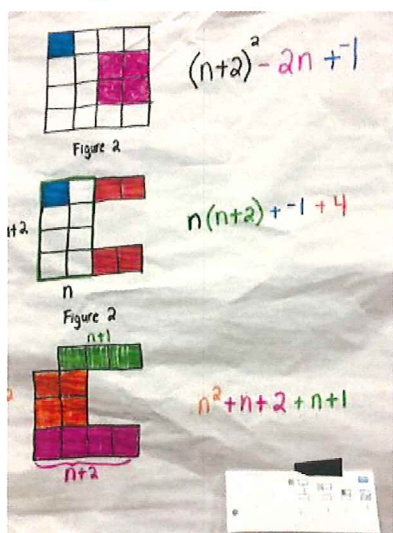 (n+2)² - 2n + -1
Figure 2
n(n+2) + -1 + 4
n+2
n
Figure 2
n+1
n² + n+2 + n+1
n+2